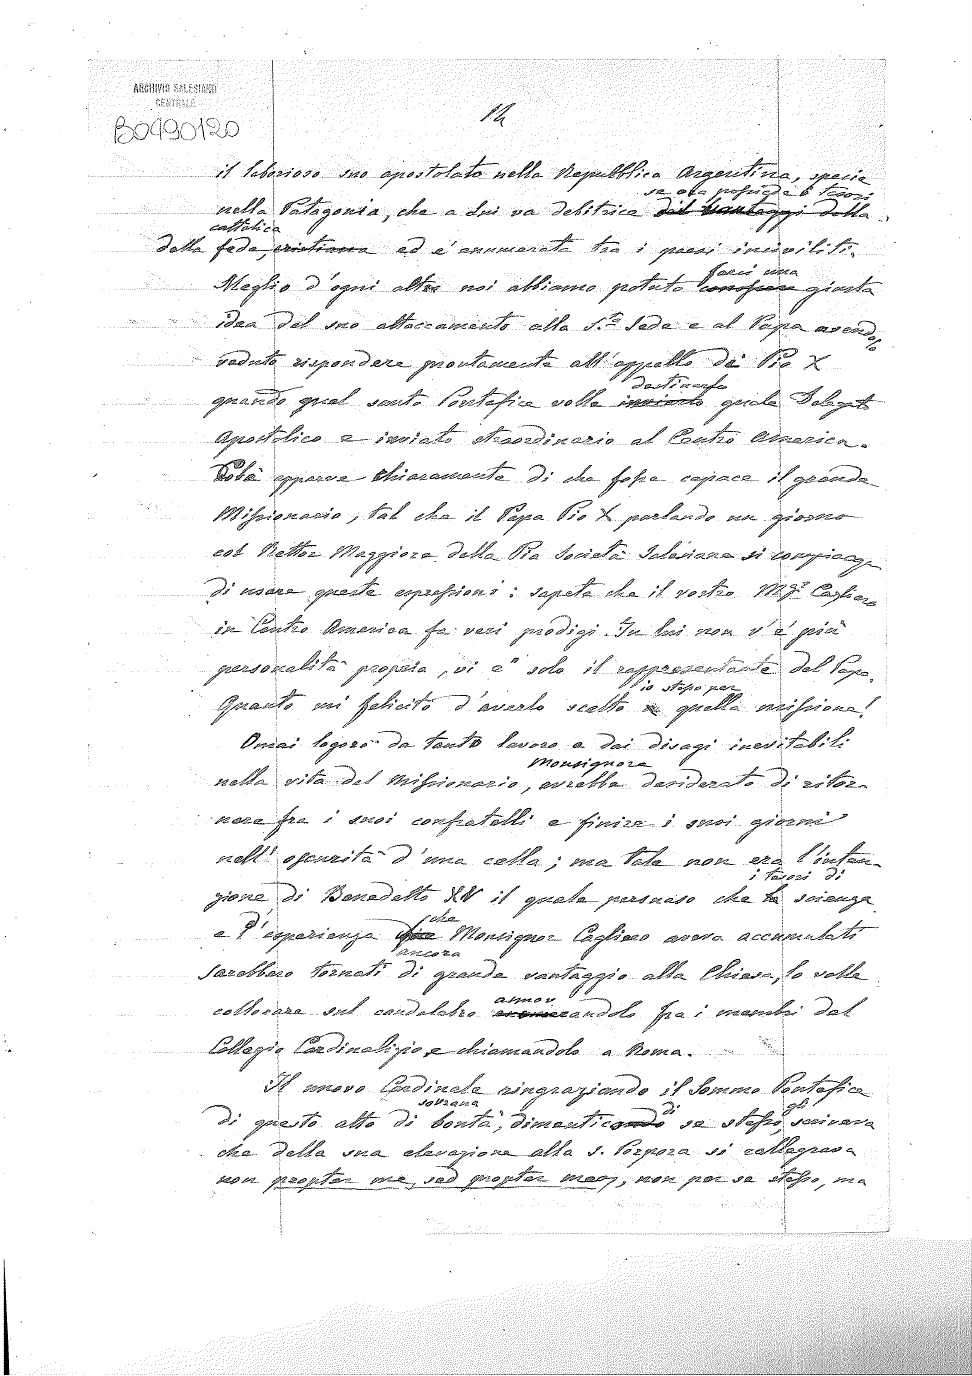 ARCHIVIO SALESIANO
CENTRALE
B0490120
12
il laborioso suo apostolato nella Repubblica Argentina, specie
se ora possiede i tesori
nella Patagonia, che a Lui va debitrice dei vantaggi della
cattolica
della fede, cristiana ed è annumerata tra i paesi inciviliti.
farci una
Meglio d'ogni altro noi abbiamo potuto giusta
idea del suo attaccamento alla S.ta Sede e al Papa avendolo
veduto rispondere prontamente all'appello di Pio X
destinarlo
quando quel santo Pontefice volle inviarlo quale Delegato
Apostolico e inviato straordinario al Centro America.
Colà apparve chiaramente di che fosse capace il grande
Missionario, tal che il Papa Pio X parlando un giorno
col Rettor Maggiore della Pia Società Salesiana si compiacque
di usare queste espressioni: sapete che il vostro Mgr. Cagliero
in Centro America fa veri prodigi. In lui non v'è più
personalità propria, vi è solo il rappresentante del Papa.
io stesso per
Quanto mi felicito d'averlo scelto quella missione!
Omai logoro da tanto lavoro e dai disagi inevitabili
Monsignore
nella vita del Missionario, avrebbe desiderato di ritor-
nare fra i suoi confratelli e finire i suoi giorni
nell'oscurità d'una cella; ma tale non era l'inten-
i tesori di
zione di Benedetto XV il quale persuaso che la scienza
che
e d'esperienza Monsignor Cagliero aveva accumulati
ancora
sarebbero tornati di grande vantaggio alla Chiesa, lo volle
annov
collocare sul candelabro enumerandolo fra i membri del
Collegio Cardinalizio, e chiamandolo a Roma.
Il nuovo Cardinale ringraziando il Sommo Pontefice
sovrana di gli
di questo atto di bontà, dimenticando se stesso, scriveva
che della sua elevazione alla S. Porpora si rallegrava
non propter me, sed propter meos, non per se stesso, ma